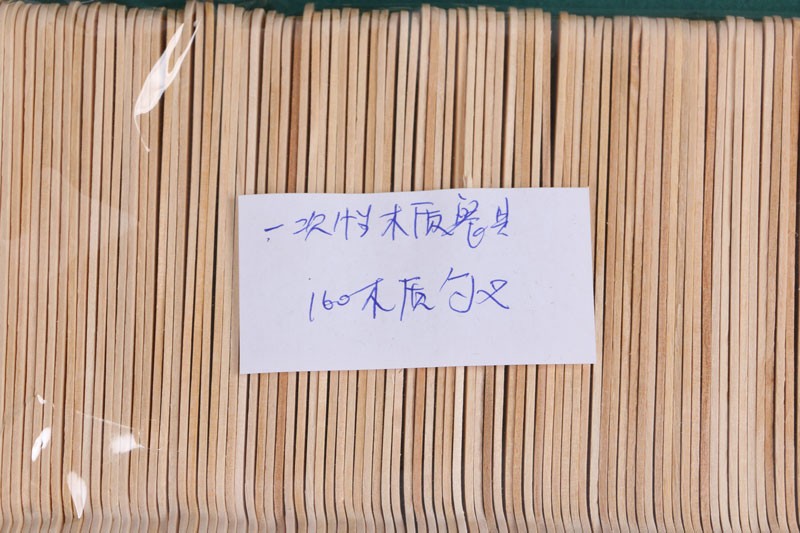 一次性木质餐具
160木质勺叉